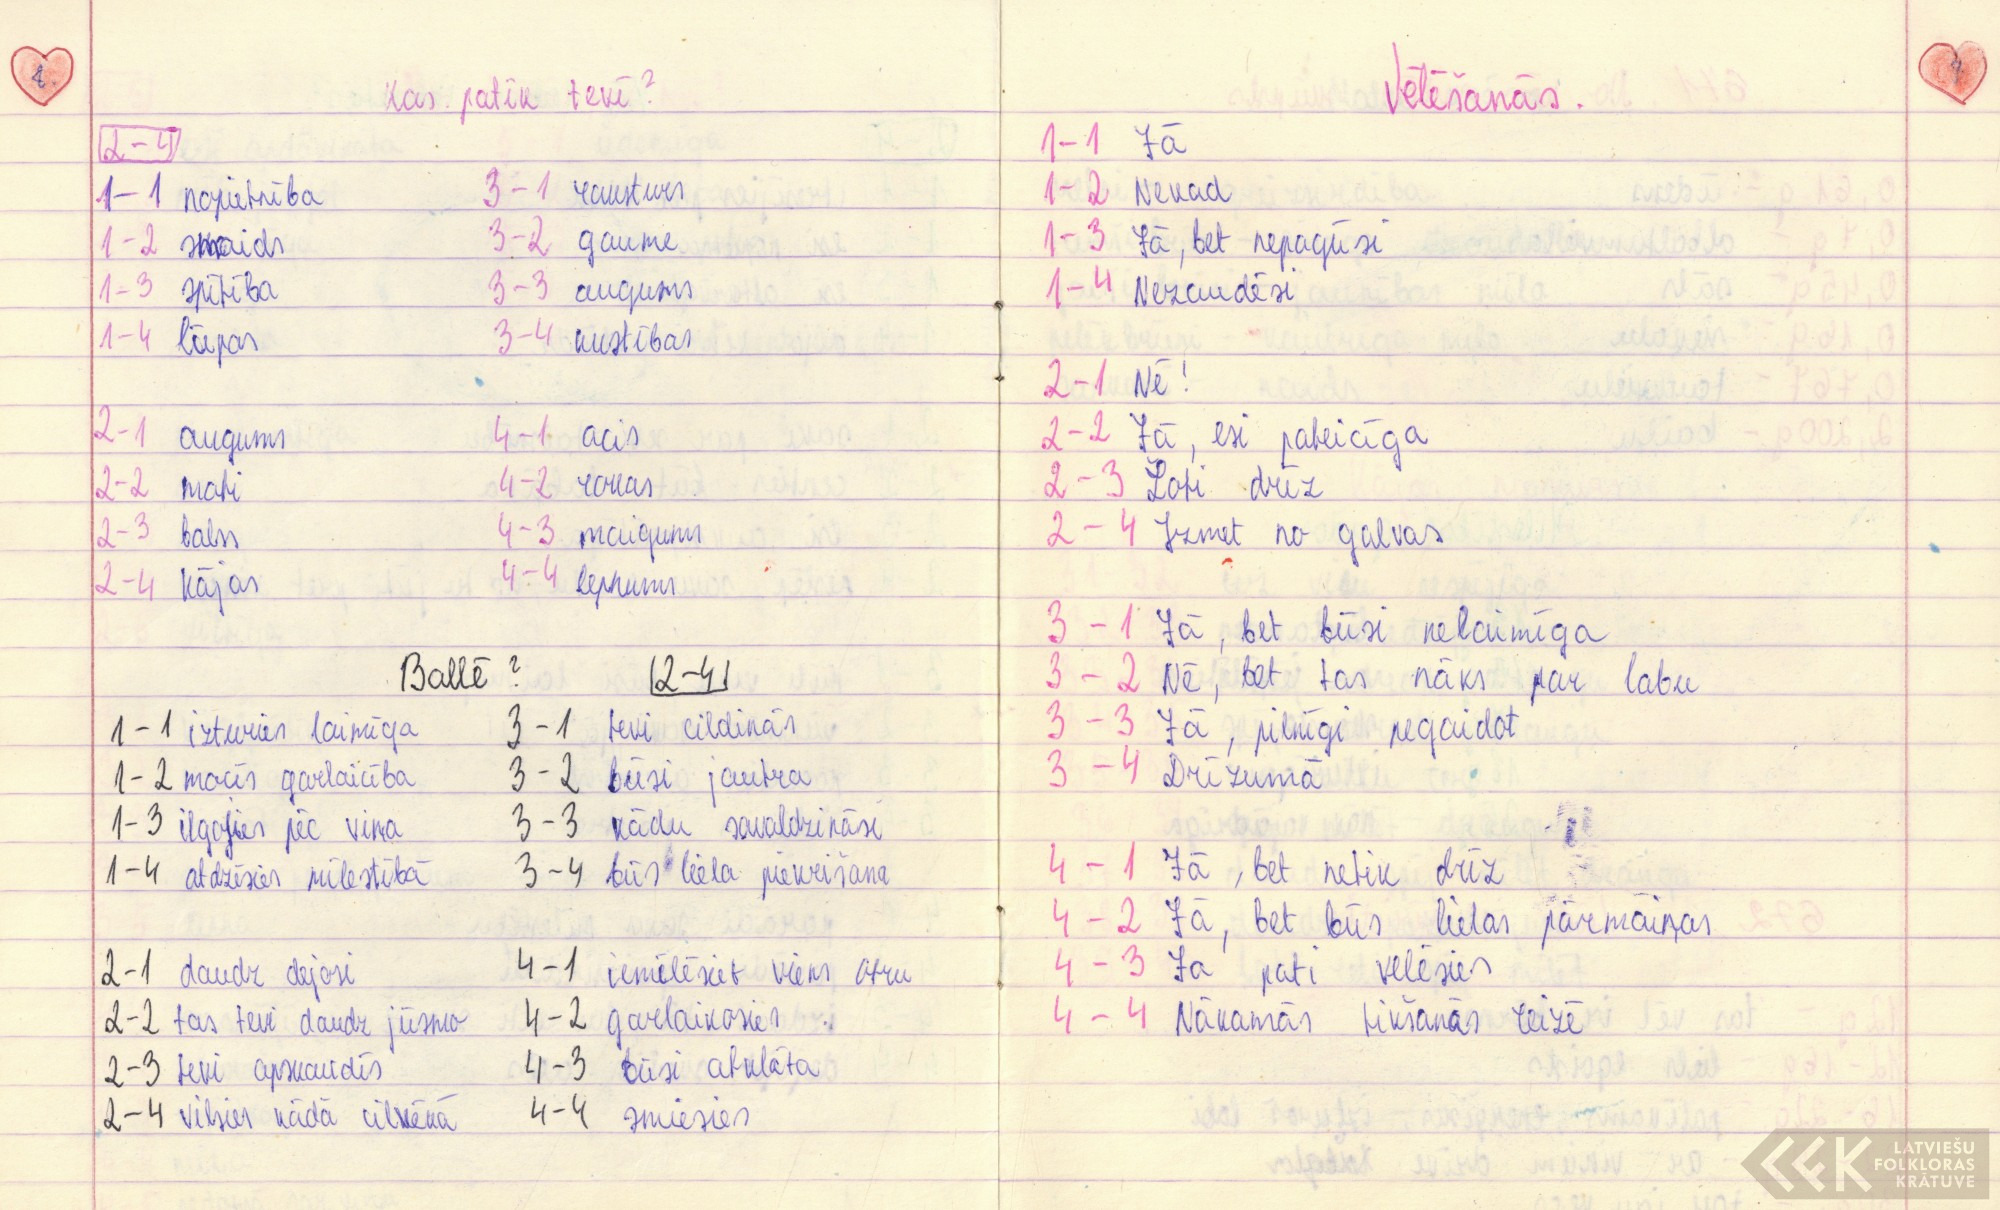 8.
Kas patīk tevī?
2-4
1-1 nopietnība
1-2 smaids
1-3 spītība
1-4 lūpas
3-1 raksturs
3-2 gaume
3-3 augums
3-4 kustības
2-1 augums
2-2 mati
2-3 balss
2-4 kājas
4-1 acis
4-2 rokas
4-3 maigums
4-4 lepnums
Ballē?
2-4
1-1 izturies laimīga
1-2 mocīs garlaicība
1-3 ilgojies pēc viņa
1-4 atdzisies mīlestībā
3-1 tevi cildinās
3-2 būsi jautra
3-3 kādu savaldzināsi
3-4 būs liela piekrišana
2-1 daudz dejosi
2-2 tas tevi daudz jūsmo
2-3 tevi apskaudīs
2-4 vilsies kādā cilvēkā
4-1 iemīlēsiet viens otru
4-2 garlaikosies
4-3 būsi atklāta
4-4 smiesies
9
Vēlēšanās.
1-1 Jā
1-2 Nekad
1-3 Jā, bet nepagūsi
1-4 Nezaudēsi
2-1 Nē!
2-2 Jā, esi pateicīga
2-3 Ļoti drīz
2-4 Izmet no galvas
3-1 Jā, bet būsi nelaimīga
3-2 Nē, bet tas nāks par labu
3-3 Jā, pilnīgi negaidot
3-4 Drīzumā
4-1 Jā, bet netik drīz
4-2 Jā, bet būs lielas pārmaiņas
4-3 Ja pati vēlēsies
4-4 Nākamās tikšanās reizē
LATVIEŠU
FOLKLORAS
KRĀTUVE